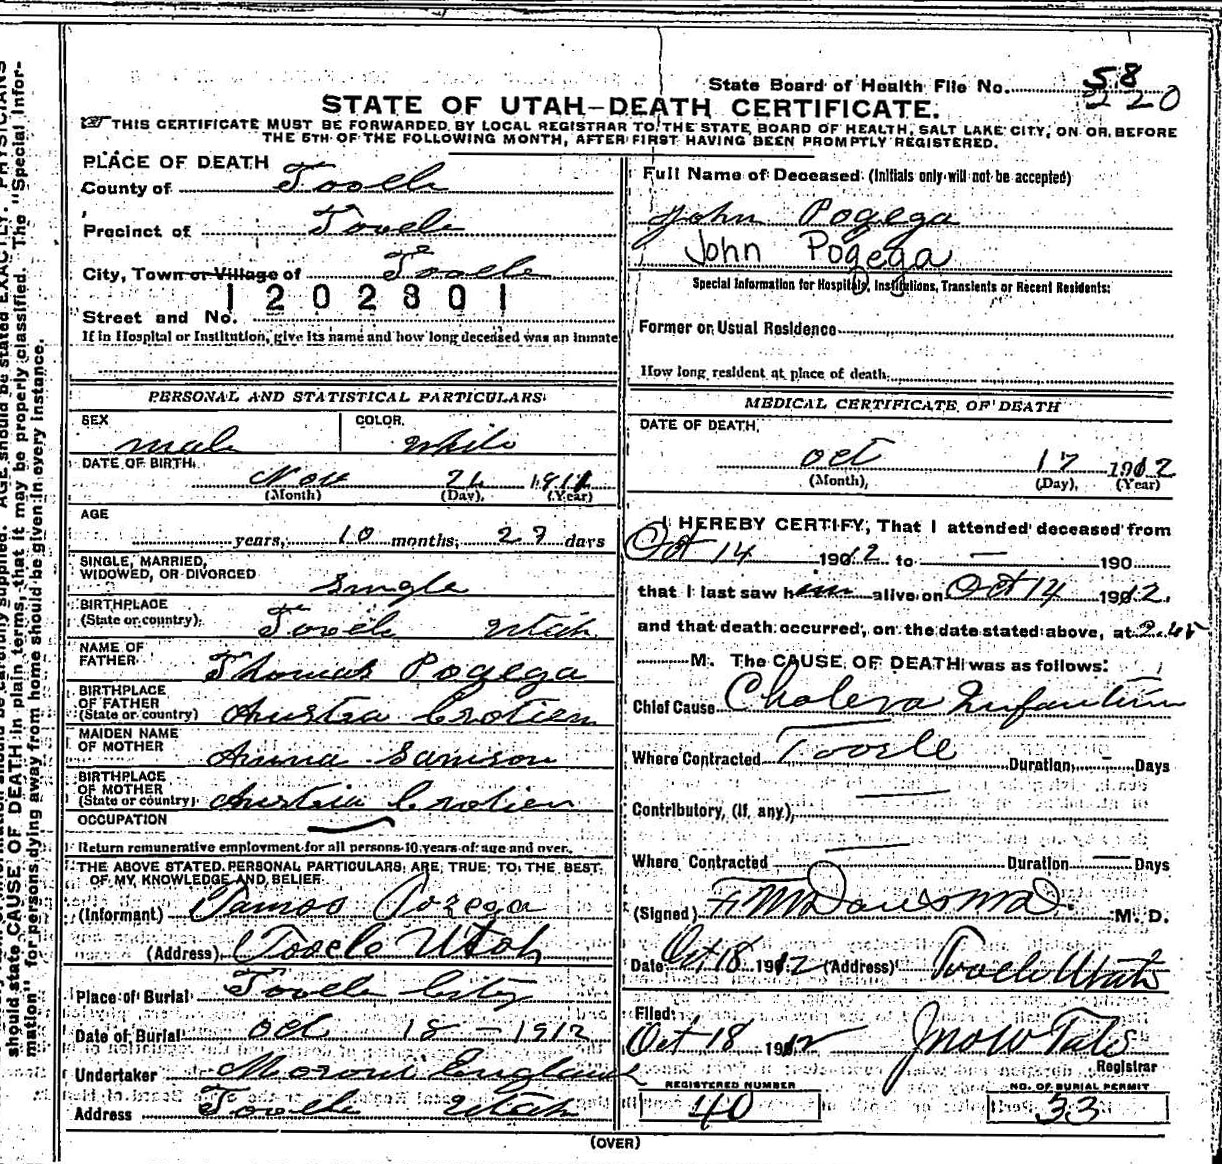 State Board of Health File No. 58
220
STATE OF UTAH—DEATH CERTIFICATE.
THIS CERTIFICATE MUST BE FORWARDED BY LOCAL REGISTRAR TO THE STATE BOARD OF HEALTH, SALT LAKE CITY, ON OR BEFORE
THE 5TH OF THE FOLLOWING MONTH, AFTER FIRST HAVING BEEN PROMPTLY REGISTERED.
PLACE OF DEATH
County of Tooele
Precinct of Tooele
City, Town or Village of Tooele
1202801
Street and No.
If in Hospital or Institution, give its name and how long deceased was an inmate
Full Name of Deceased (Initials only will not be accepted)
John Pogega
John Pogega
Special Information for Hospitals, Institutions, Transients or Recent Residents:
Former or Usual Residence
How long resident at place of death
PERSONAL AND STATISTICAL PARTICULARS
SEX male COLOR white
DATE OF BIRTH Nov 1911
(Month) (Day) (Year)
AGE
years, 10 months, 27 days
SINGLE, MARRIED,
WIDOWED, OR DIVORCED Single
BIRTHPLACE
(State or country) Tooele Utah
NAME OF
FATHER Thomas Pogega
BIRTHPLACE
OF FATHER
(State or country) Austria Crotien
MAIDEN NAME
OF MOTHER Anna Samson
BIRTHPLACE
OF MOTHER
(State or country) Austria Crotien
OCCUPATION
Return remunerative employment for all persons 10 years of age and over.
THE ABOVE STATED PERSONAL PARTICULARS ARE TRUE TO THE BEST
OF MY KNOWLEDGE AND BELIEF
(Informant) Pozega
(Address) Tooele Utah
Place of Burial Tooele City
Date of Burial oct 18 - 1912
Undertaker Moroni England
Address Tooele Utah
MEDICAL CERTIFICATE OF DEATH
DATE OF DEATH
oct 17 1912
(Month) (Day) (Year)
I HEREBY CERTIFY, That I attended deceased from
Oct 14 1912 to — 190
that I last saw him alive on Oct 14 1912.
and that death occurred, on the date stated above, at 2.45
M. The CAUSE OF DEATH was as follows:
Chief Cause Cholera Infantum
Where Contracted Tooele Duration - Days
Contributory, (if any)
Where Contracted — Duration — Days
(Signed) M. D.
Date Oct 18 1912 (Address) Tooele Utah
Filed:
Oct 18 1912 Jno W Tate
Registrar
REGISTERED NUMBER
40
NO. OF BURIAL PERMIT
33
(OVER)
AGE should be stated EXACTLY. PHYSICIANS
should state CAUSE OF DEATH in plain terms, that it may be properly classified. The "Special Infor-
mation" for persons dying away from home should be given in every instance.